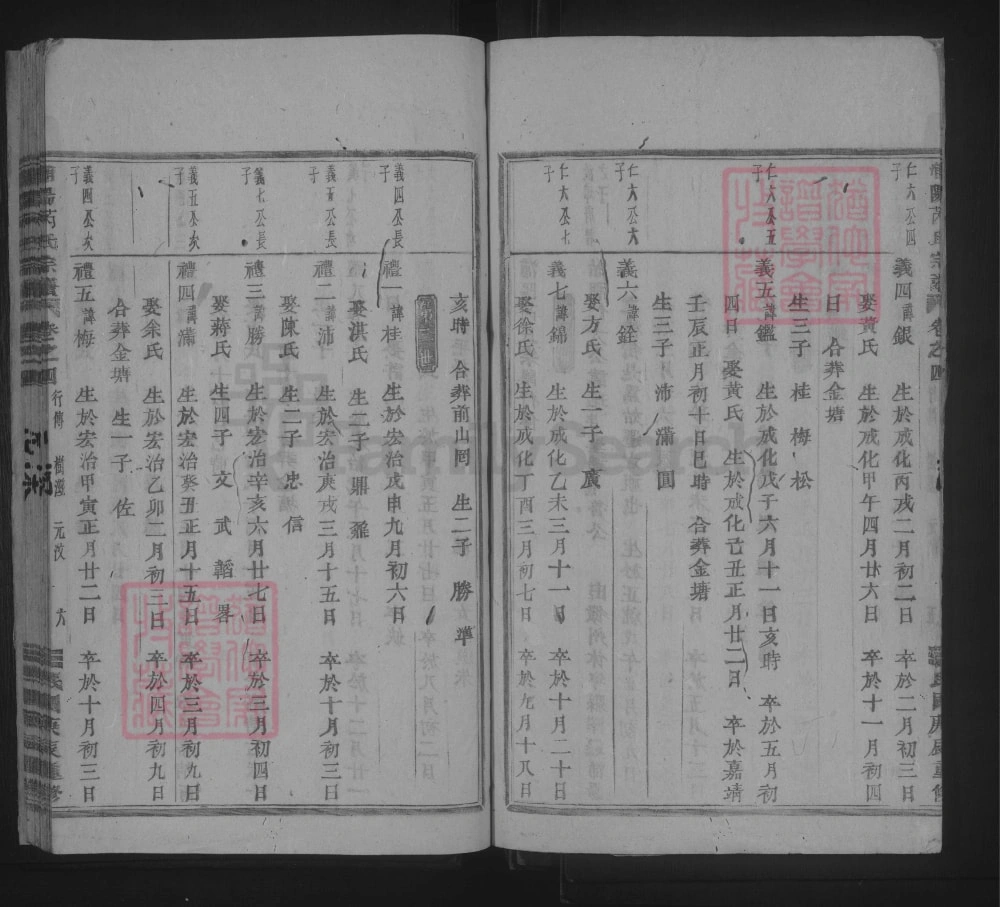 仁大公四子
義四諱銀 生於成化丙戌二月初二日 卒於二月初三日
娶黃氏 生於成化甲午四月廿六日 卒於十一月初四
日 合葬金塘
生三子 桂 梅 松
仁大公五子
義五諱鑑 生於成化戊子六月十一日亥時 卒於五月初
四日 娶黃氏 生於成化己丑正月廿二日 卒於嘉靖
壬辰正月初十日巳時 合葬金塘
生三子 沛 滿 圓
仁大公六子
義六諱銓
娶方氏 生一子 廣
仁大公七子
義七諱錦 生於成化乙未三月十一日 卒於十月二十日
娶徐氏 生於成化丁酉三月初七日 卒於九月十八日
亥時 合葬前山岡 生二子 勝 準
義四公長子
禮一諱桂 生於宏治戊申九月初六日
娶淇氏 生二子 鼎
義五公長子
禮二諱沛 生於宏治庚戌三月十五日 卒於十月初三日
娶陳氏 生二子 忠 信
義七公長子
禮三諱勝 生於宏治辛亥六月廿七日 卒於三月初四日
娶蔣氏 生四子 文 武 韜 畧
義五公次子
禮四諱滿 生於宏治癸丑正月十五日 卒於三月初九日
娶余氏 生於宏治乙卯二月初三日 卒於四月初九日
合葬金塘 生一子 佐
義四公次子
禮五諱梅 生於宏治甲寅正月廿二日 卒於十月初三日
芮氏宗譜 卷之四 行傳 六